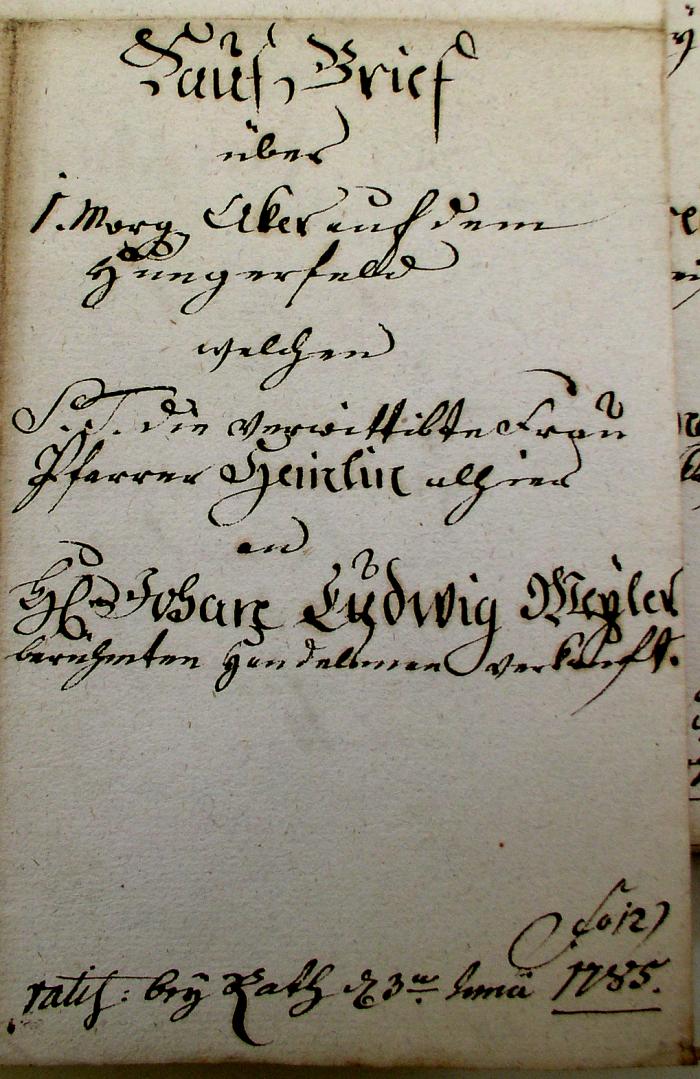 Kauf Brief
über
1. Morg. Aker auf dem
Hungerfeld
welchen
S. T. die verwittibte Frau
Pfarrer Heinlin allhier
an
Hr. Johan Ludwig Weyler
berühmten Handelsman verkauft.
fo 12
ratif: bey Rath d 3n Junii 1785.